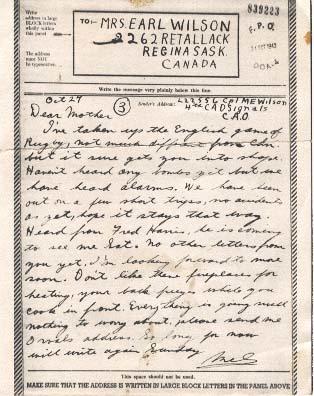 Write the address in large BLOCK letters wholly within this panel
The address must NOT be typewritten.
TO:- MRS. EARL WILSON
2262 RETALLACK
REGINA SASK.
CANADA
839223
F.P.O.
Write the message very plainly below this line.
Oct 27
3
Sender's Address: L22556 Cpl M E Wilson
4th CAD Signals
C.A.O.
Dear Mother
I've taken up the English game of
Rugby, not much different from Cdn.
but it sure gets you into shape.
Haven't heard any bombs yet but we
have heard alarms. We have been
out on a few short trips, no accidents
as yet, hope it stays that way.
Heard from Fred Harris, he is coming
to see me Sat. No other letters from
you yet, I'm looking forward to more
soon. Don't like these fireplaces for
heating, your back freezes while you
cook in front. Everything is going well
nothing to worry about, please send me
Orvals address. So long for now
will write again Sunday
Mel
This space should not be used.
MAKE SURE THAT THE ADDRESS IS WRITTEN IN LARGE BLOCK LETTERS IN THE PANEL ABOVE